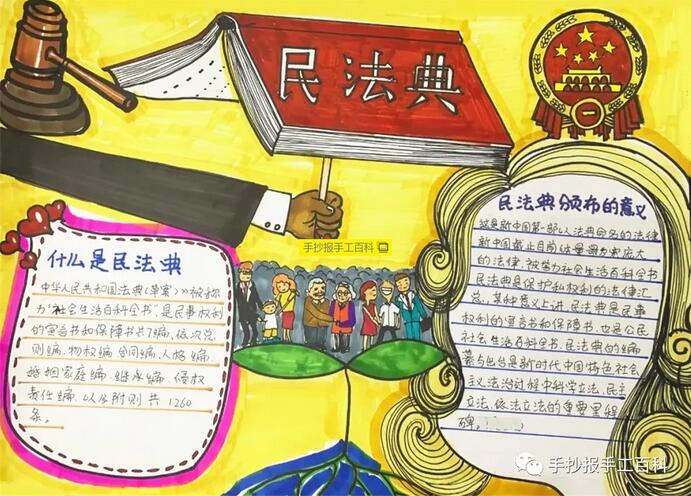 民法典
手抄报手工百科
什么是民法典
中华人民共和国法典(草案)》被称
为“社会生活百科全书”是民事权利
的宣言书和保障书共7编、依次总
则编、物权编 合同编、人格编、
婚姻家庭编、继承编、侵权
责任编、以及附则 共1260
条。
民法典颁布的意义
这是新中国第一部以法典命名的法律
新中国截止目前体量最为庞大
的法律,被誉为社会生活百科全书
民法典是保护和权利的法律汇
总,某种意义上讲,民法典是民事
权利的宣言书和保障书,也是公民
社会生活百科全书.民法典的编
纂与出台是新时代中国特色社会
主义法治过程中科学立法、民主
立法、依法立法的重要里程
碑。
手抄报手工百科